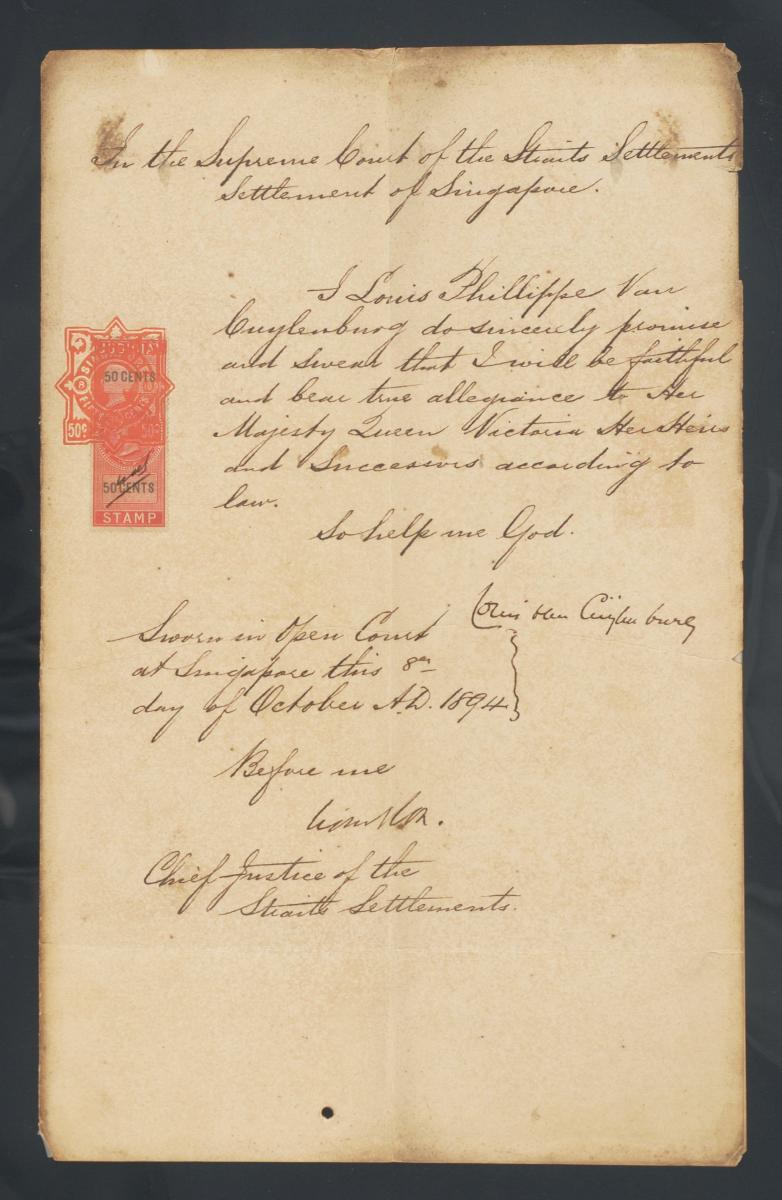 In the Supreme Court of the Straits Settlements
Settlement of Singapore.
I Louis Phillippe Van
Cuylenburg do sincerely promise
and swear that I will be faithful
and bear true allegiance to Her
Majesty Queen Victoria Her Heirs
and Successors according to
law.
So help me God.
Louis Van Cuylenburg
Sworn in Open Court
at Singapore this 8th
day of October A.D. 1894
Before me
Chief Justice of the
Straits Settlements.
JUDICIAL
50 CENTS
50c
50 CENTS
STAMP